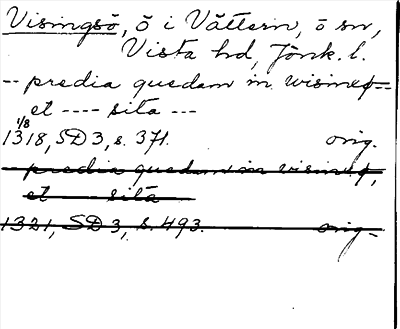 Visingsö, ö i Vättern, ö sn,
Vista hd, Jönk. l.
-- predia quedam in wisinsø--
et ---- sita ---
1/8
1318, SD 3, s. 371. orig.
predia quedam in visinsø,
et sita
1321, SD 3, s. 493. orig-